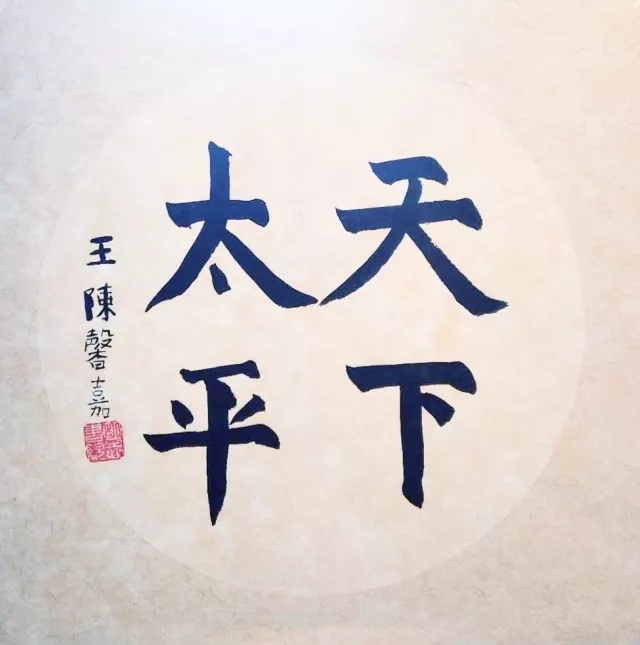 天下
太平
王陳馨嘉